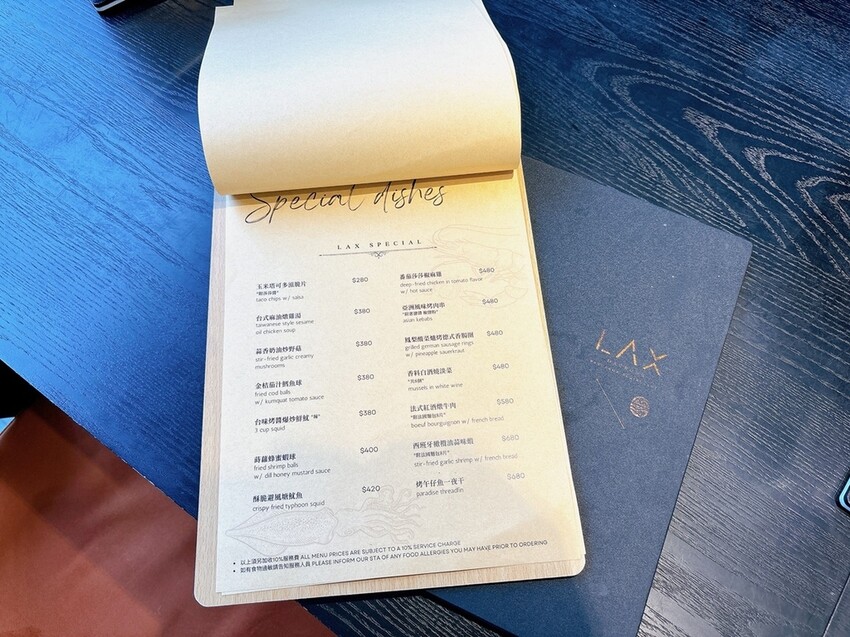 Special dishes
LAX SPECIAL
玉米塔可多滋脆片
$280
"附莎莎醬"
taco chips w/ salsa
台式麻油燉雞湯
$380
taiwanese style sesame
oil chicken soup
蒜香奶油炒野菇
$380
stir-fried garlic creamy
mushrooms
金桔茄汁鱈魚球
$380
fried cod balls
w/ kumquat tomato sauce
台味烤醬爆炒鮮魷 "辣"
$380
3 cup squid
蒔蘿蜂蜜蝦球
$400
fried shrimp balls
w/ dill honey mustard sauce
酥脆避風塘魷魚
$420
crispy fried typhoon squid
番茄莎莎椒麻雞
$480
deep-fried chicken in tomato flavor
w/ hot sauce
亞洲風味烤肉串
$480
asian kebabs
鳳梨酸菜燻烤德式香腸圈
$480
grilled german sausage rings
w/ pineapple sauerkraut
香料白酒燒淡菜
$480
mussels in white wine
法式紅酒燉牛肉
$580
"附法國麵包8片"
boeuf bourguignon w/ french bread
西班牙橄欖油蒜味蝦
$680
"附法國麵包8片"
stir-fried garlic shrimp w/ french bread
烤午仔魚一夜干
$680
paradise threadfin
• 以上須另加收10%服務費 ALL MENU PRICES ARE SUBJECT TO A 10% SERVICE CHARGE
• 如有食物過敏請告知服務人員 PLEASE INFORM OUR STA OF ANY FOOD ALLERGIES YOU MAY HAVE PRIOR TO ORDERING
LAX